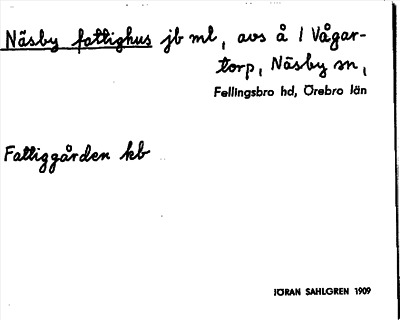 Näsby fattighus jb ml, avs å 1 Vågar-
torp, Näsby sn,
Fellingsbro hd, Örebro län
Fattiggården kb
JÖRAN SAHLGREN 1909